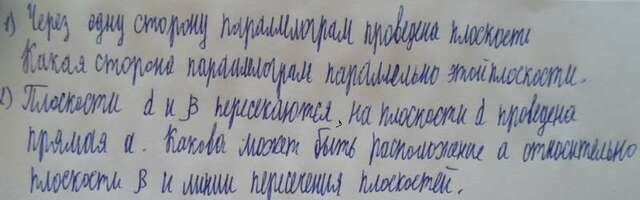 1) Через одну сторону параллелограм проведена плоскости
Какая сторона параллелограм параллельно этой плоскости.
2) Плоскости α и β пересекаются, на плоскости α проведена
прямая а. Какова может быть расположение а относительно
плоскости β и линии пересечения плоскостей.